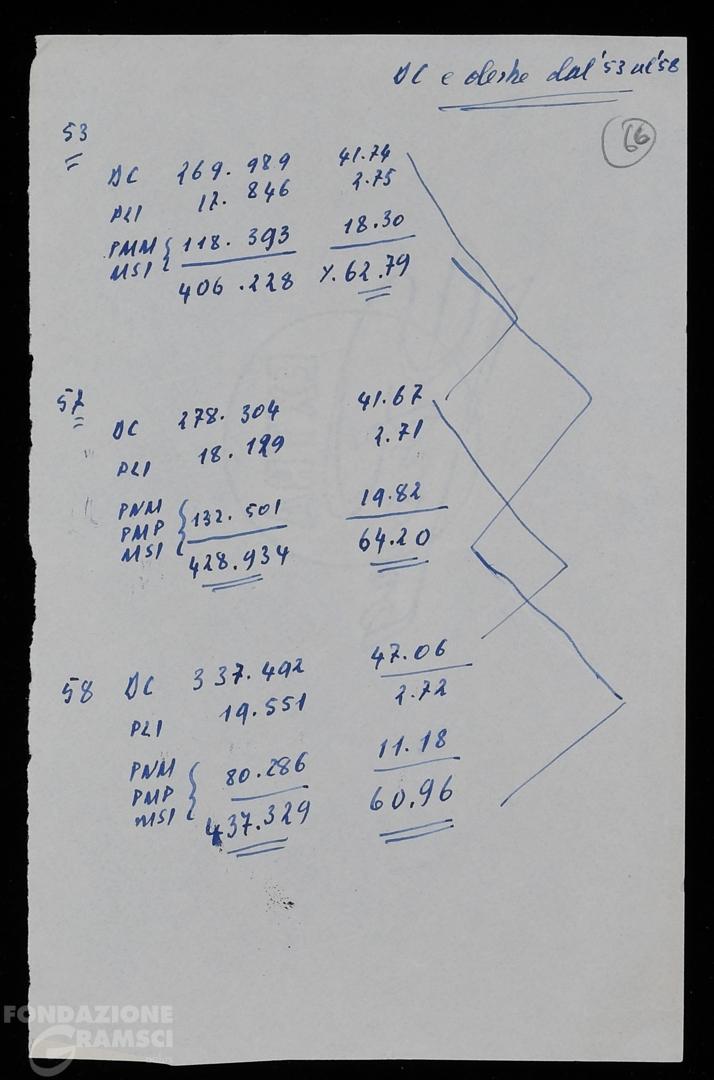 DC e destre dal '53 al '58
66
53
DC 269.989 41.74
PLI 17.846 2.75
PNM
MSI { 118.393 18.30
406.228 %.62.79
57
DC 278.304 41.67
PLI 18.129 2.71
PNM
PMP { 132.501 19.82
MSI
428.934 64.20
58 DC 337.492 47.06
PLI 19.551 2.72
PNM
PMP { 80.286 11.18
MSI
437.329 60.96
FONDAZIONE
GRAMSCI